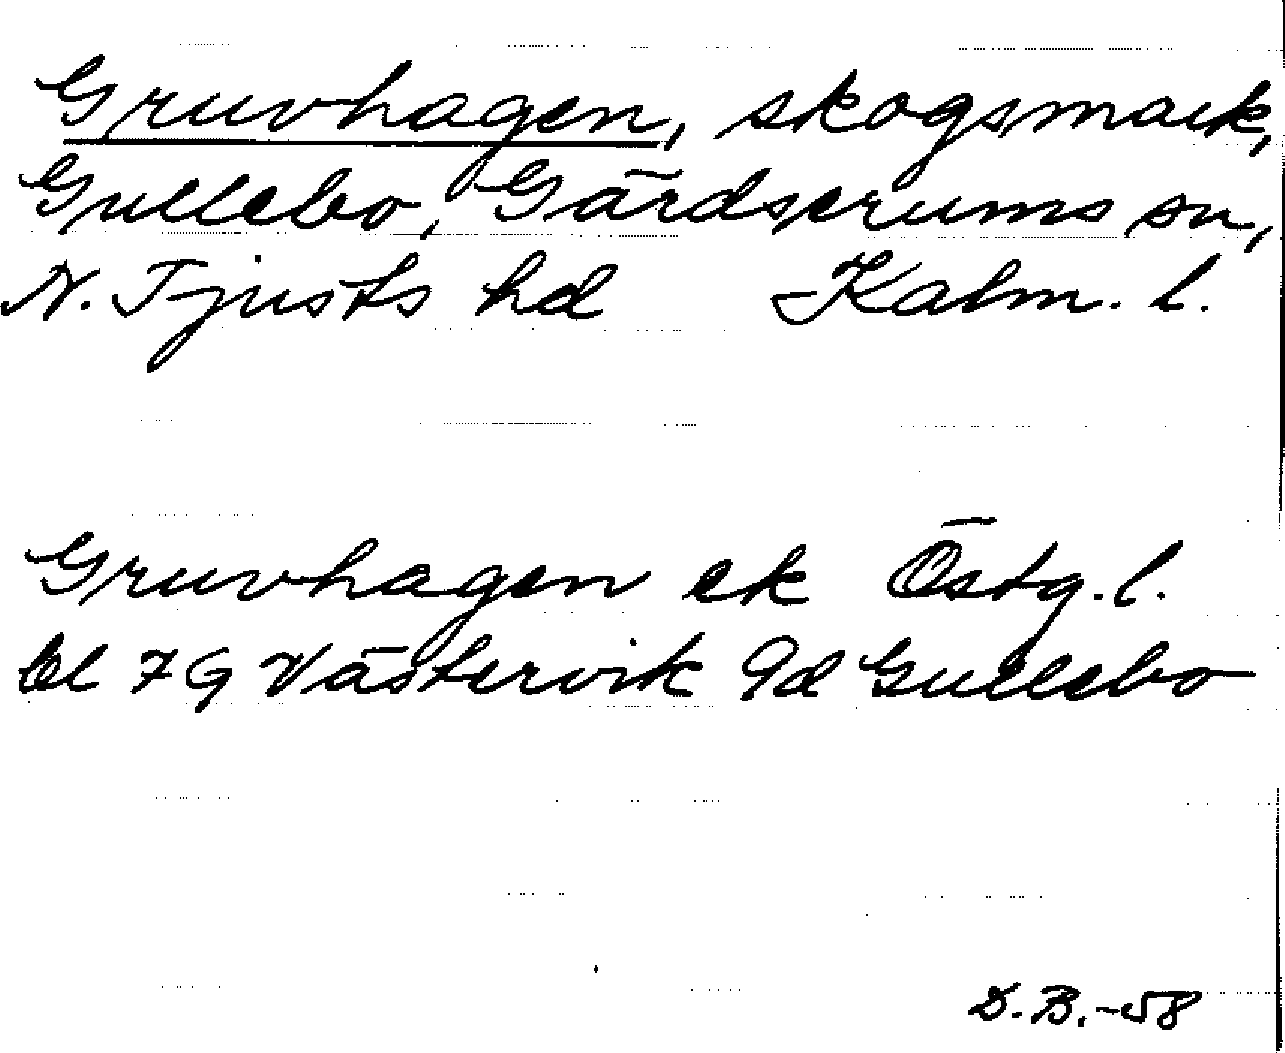 Gruvhagen, skogsmark,
Gullebo, Gärdserums sn,
N. Tjusts hd Kalm. l.
Gruvhagen ek Östg. l.
bl 7 G Västervik 9d Gullebo
D.B.-58